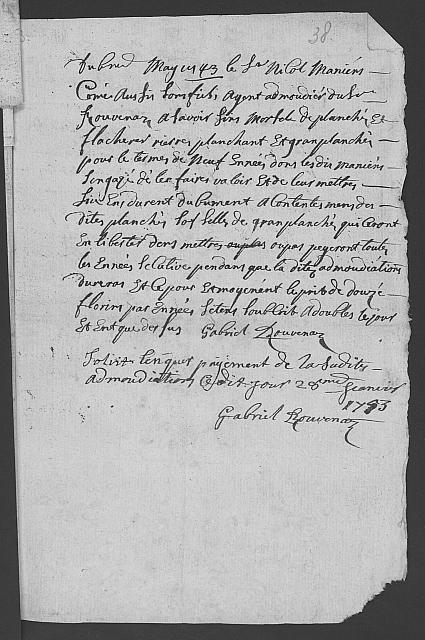 38
May 1743 le Sr Nicol Maniérs
Come Aussis son fils, Agent admoudier du Sr
Rouvenaz a Savoir Sins Morsel de planches Et
flacheres rierre planchant Et granplanche
pour le termes de Neuf Ennées dons les dis maniérs
Sengaze de les faires valoir Et de leur mettres
durent du fument
dites planches Sof Selles de granplanche qui Ceront
En libertes dens mettres ouplus oupas pegeront toutes
les Ennées Selative pendans que la dites admoudiations
dureras Et Ce pour Et moyenent le prit de douze
florins par Ennées Setens Soubloit A doubles le jour
Et Ent que desus Gabriel Rouvenaz
payement de la Sudites
admoudiations Cedit jour 28me Jeanvier
1753
Gabriel Rouvenaz